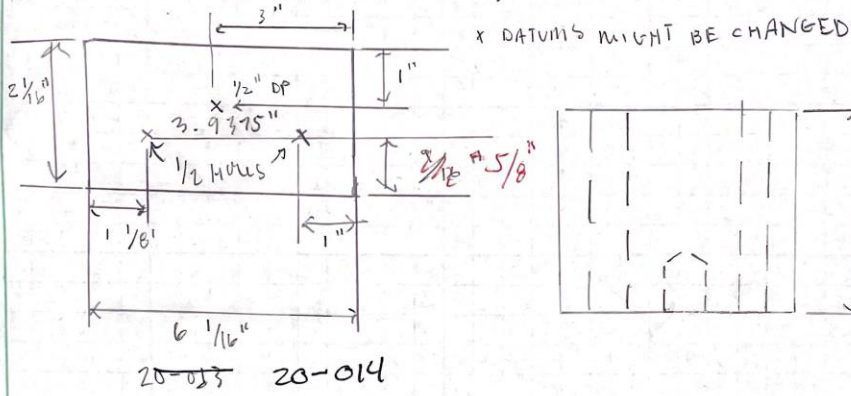 3"
x DATUMS MIGHT BE CHANGED
2 1/16"
1"
1/2" DP
3.9375"
1/2 HOLES
5/8"
1 1/8"
1"
6 1/16"
20-013 20-014